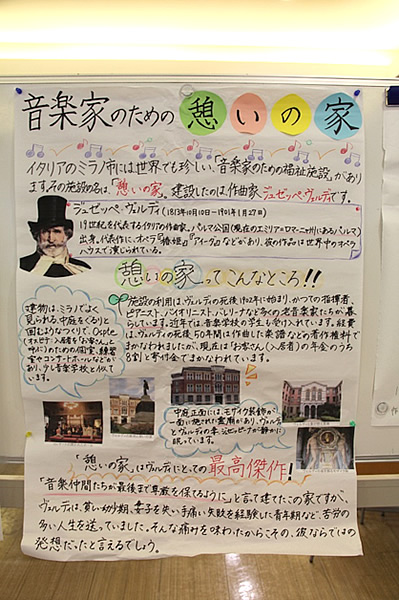 音楽家のための憩いの家
イタリアのミラノ市には世界でも珍しい、「音楽家のための福祉施設」があり
ます。その施設の名は、「憩いの家」。建設したのは作曲家ジュゼッペ・ヴェルディです。
ジュゼッペ・ヴェルディ(1813年10月10日-1901年1月27日)
19世紀を代表するイタリアの作曲家。パルマ公国(現在のエミリア=ロマーニャ州にあるパルマ)
出身。代表作に、オペラ『椿姫』『アイーダ』などがあり、彼の作品は世界中のオペラ
ハウスで演じられている。
憩いの家ってこんなところ!!
施設の利用は、ヴェルディの死後1902年に始まり、かつての指揮者、
ピアニスト、バイオリニスト、バレリーナなど多くの老音楽家たちが暮
らしています。近年では音楽学校の学生も受け入れています。経費
は、ヴェルディの死後50年間は作曲した楽譜などの著作権料で
まかなわれましたが、現在は「お客さん(入居者)の年金のうち
8割」と寄付金でまかなわれています。
建物は、ミラノでよく
見られる、中庭をぐるりと
囲むようなつくりで、Ospite
(オスピテ:入居者を「お客さん」と
呼ぶ)のための個室、練習
室やコンサートホールなどがあ
り、少し音楽学校と似てい
ます。
中庭正面には、モザイク装飾が
一面に施された霊廟があり、ヴェルディ
とヴェルディの妻、ジュゼッピーナが静かに
眠っています。
「憩いの家」はヴェルディにとっての最高傑作!
「音楽仲間たちが最後まで尊厳を保てるように」と言って建てたこの家ですが、
ヴェルディは、貧しい幼少期、妻子を失い手痛い失敗を経験した青年期など、苦労の
多い人生を送っていました。そんな痛みを味わったからこその、彼ならではの
発想だったと言えるでしょう。